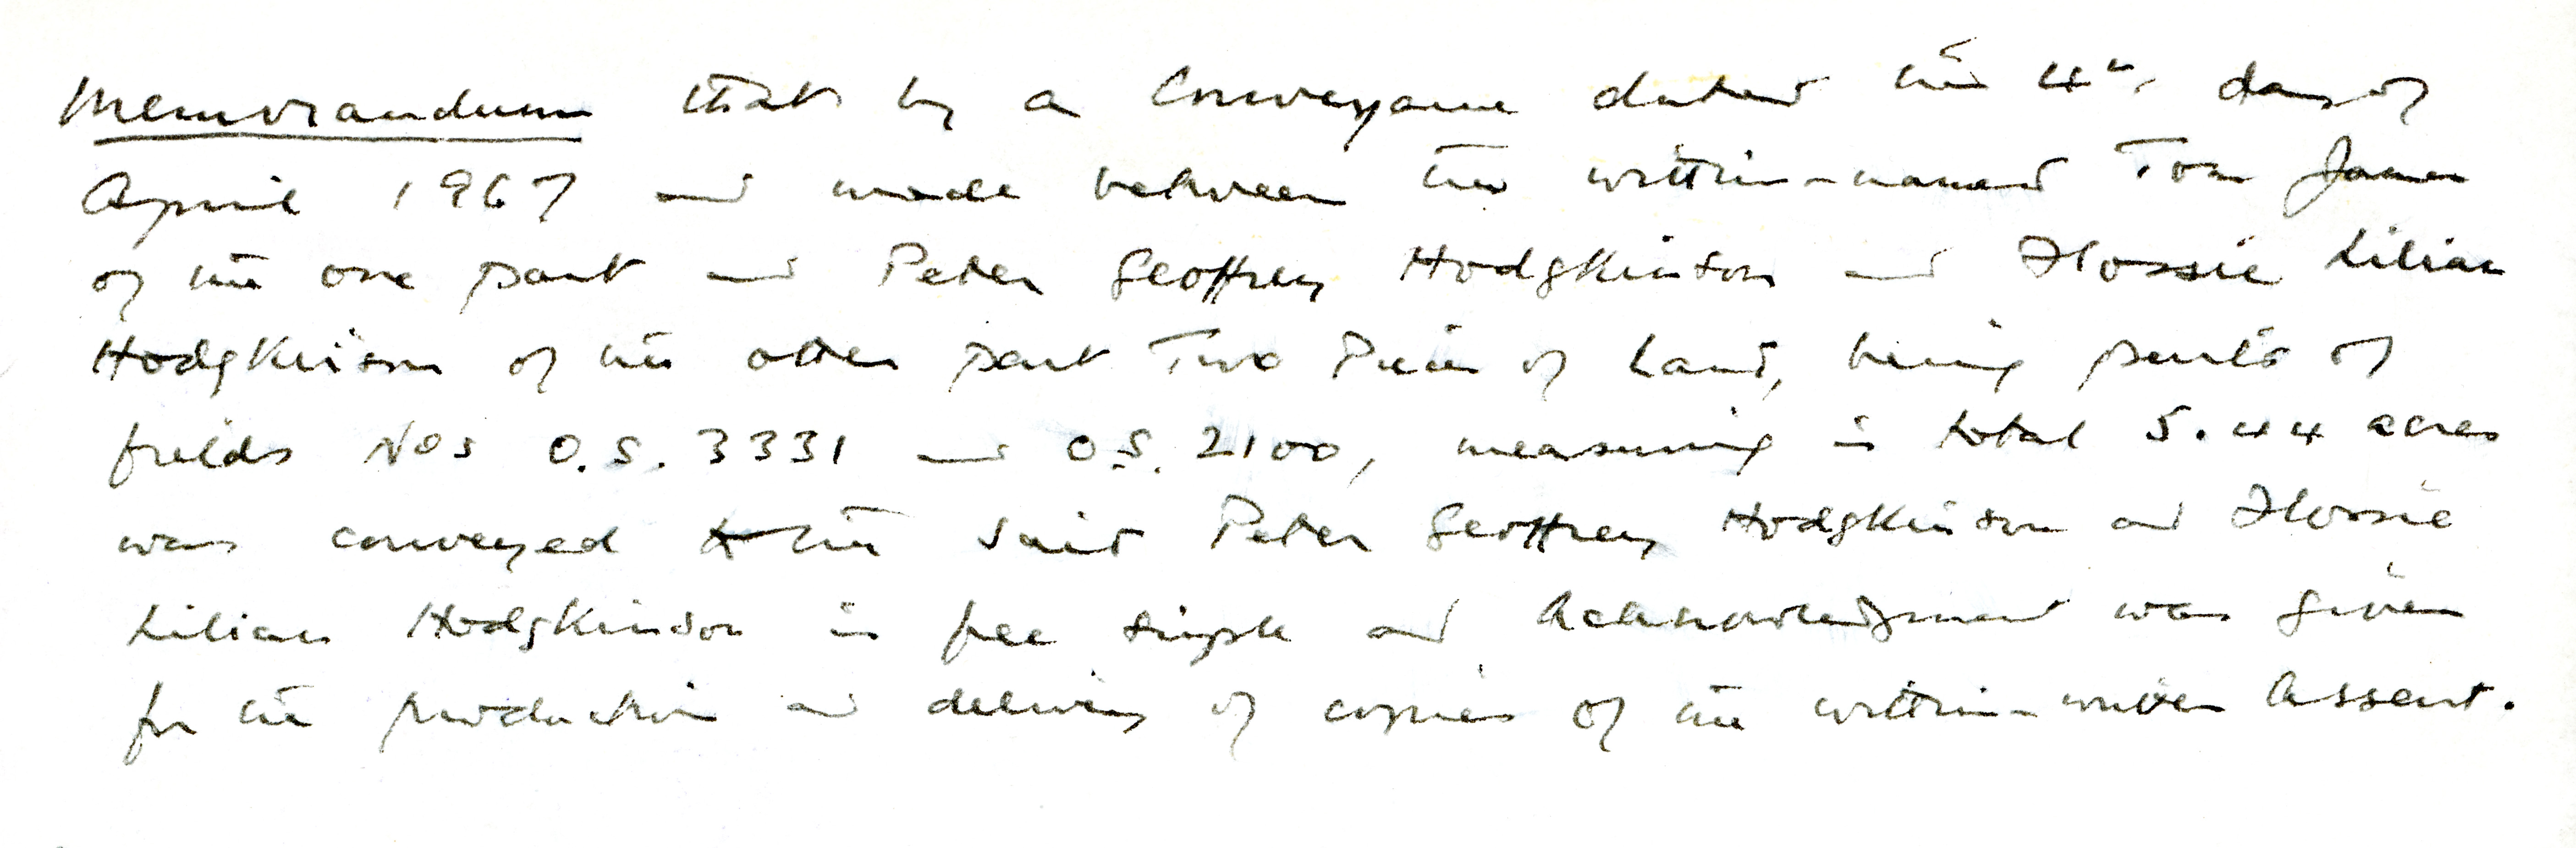 Memorandum that by a Conveyance dated the 4th day of
April 1967 and made between the within-named Tom James
of the one part and Peter Geoffrey Hodgkinson and Flossie Lilian
Hodgkinson of the other part Two Pieces of Land, being parts of
fields Nos O.S. 3331 and O.S. 2100, measuring in total 5.44 acres
was conveyed to the said Peter Geoffrey Hodgkinson and Flossie
Lilian Hodgkinson in fee simple and Acknowledgment was given
for the production and delivery of copies of the within-written Assent.